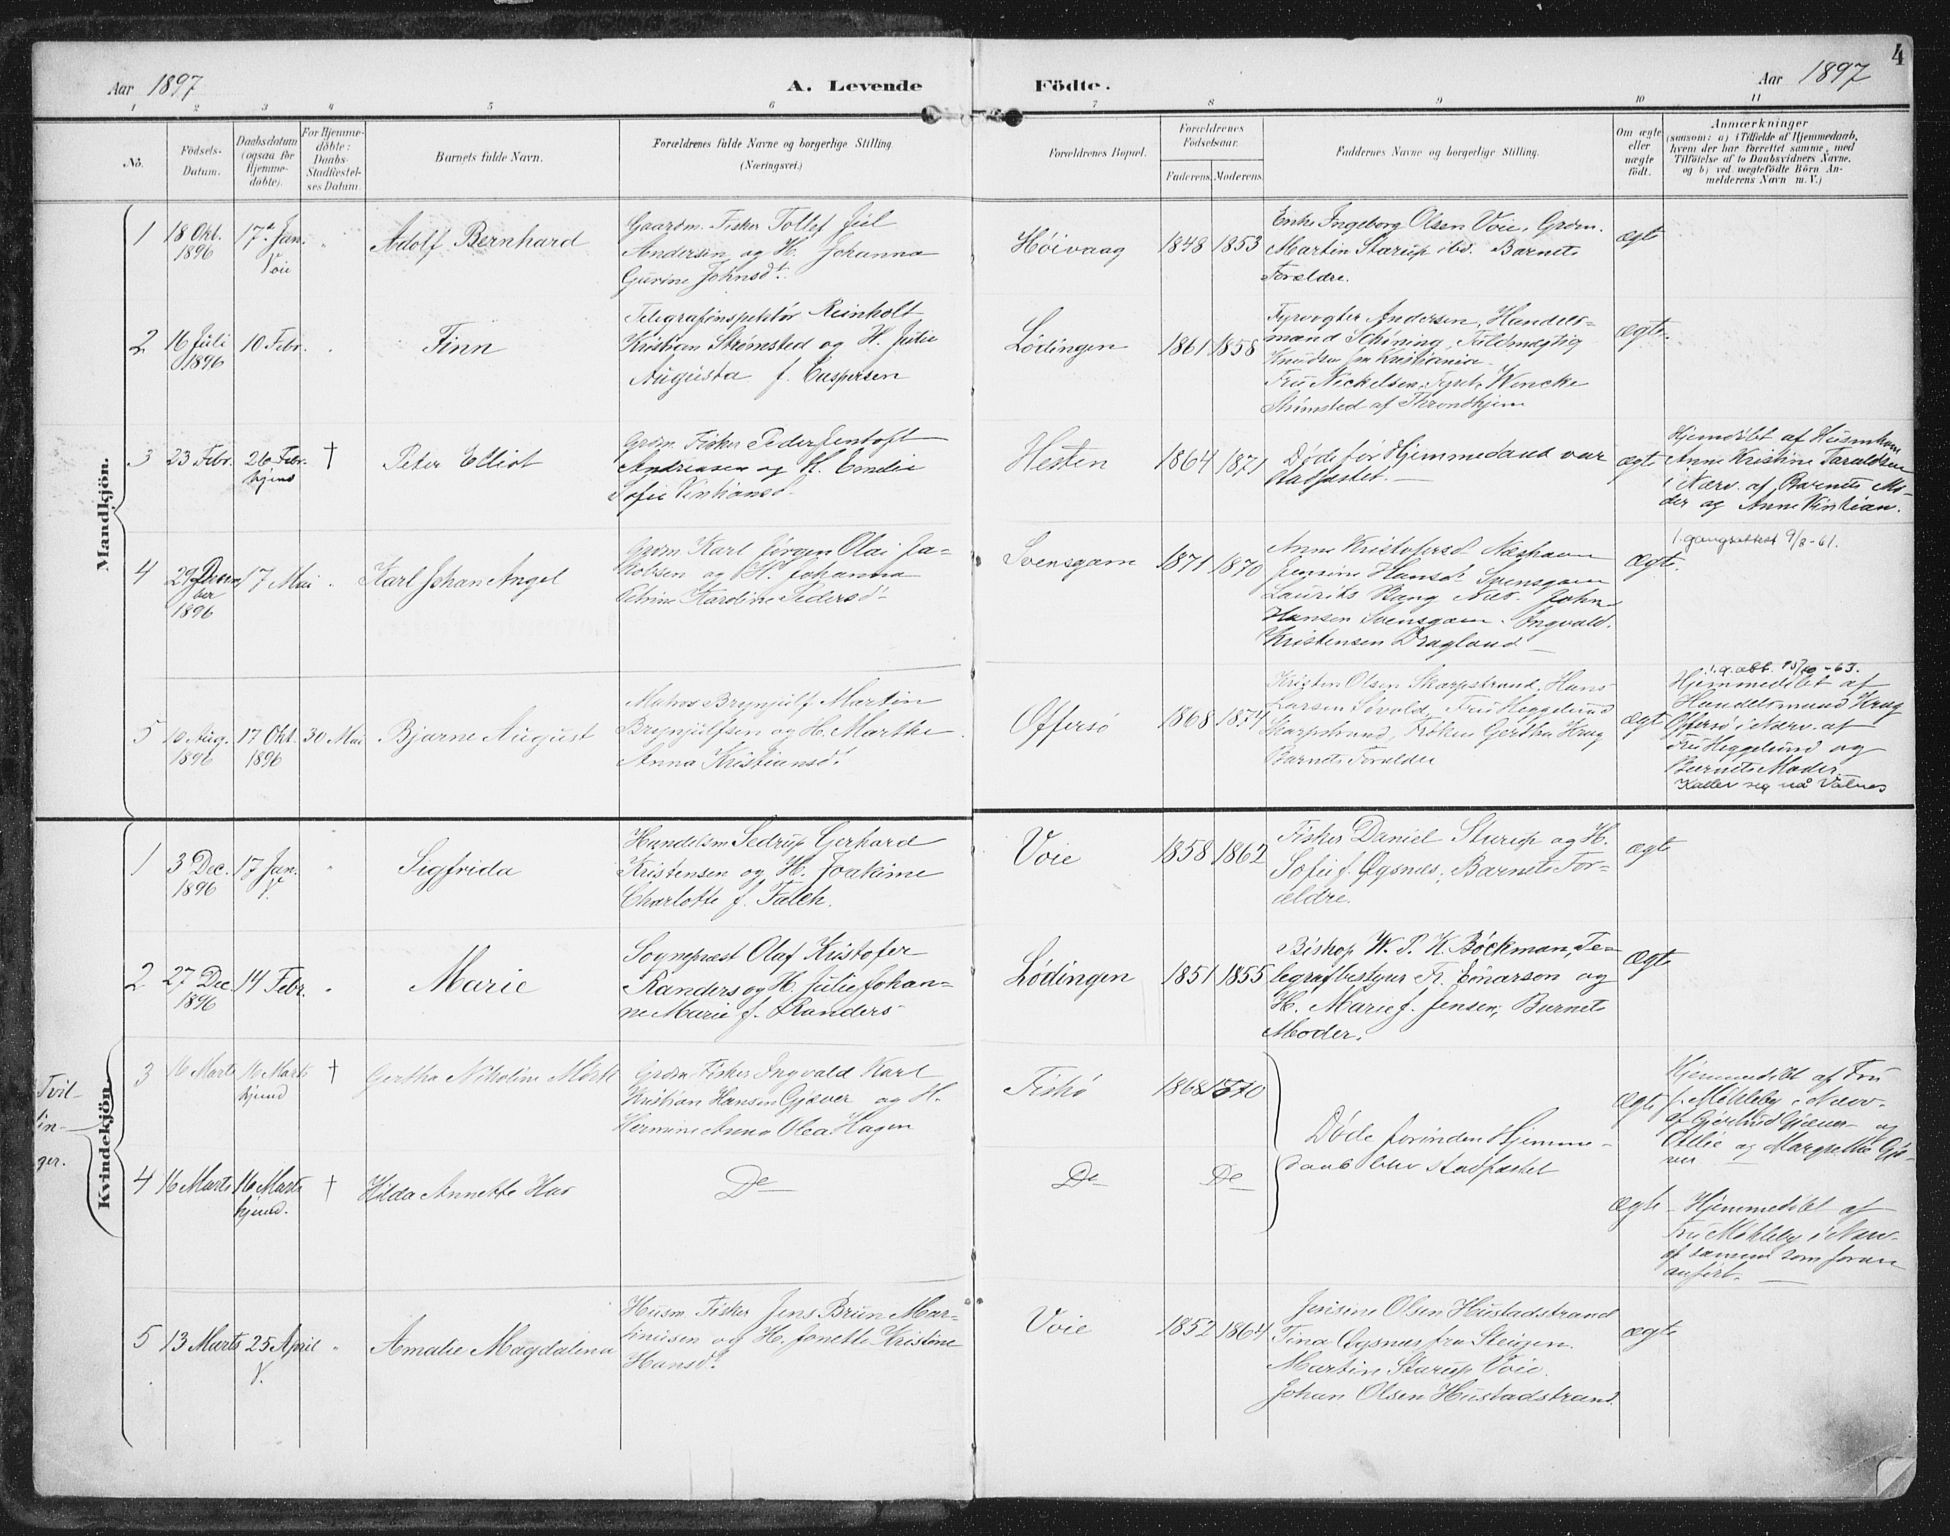 4
Aar 1897
A. Levende
Födte.
Aar 1897
1 2 3 4 5 6 7 8 9 10 11
No.
Födsels-
Datum.
Daabsdatum
(ogsaa för
Hjemme-
döbte).
For Hjemme-
döbte:
Daabs-
Stadfæstel-
ses Datum.
Barnets fulde Navn.
Forældrenes fulde Navne og borgerlige Stilling.
(Næringsvei.)
Forældrenes Bopæl.
Forældrenes
Födselsaar.
Faderens. Moderens.
Faddernes Navne og borgerlige Stilling.
Om ægte
eller
uægte
födt.
Anmærkninger
(saasom: a) i Tilfælde af Hjemmedaab,
hvem der har forrettet samme, med
Tilföielse af to Daabsvidners Navne,
og b) ved uægtefödte Börn An-
melderens Navn m. V.)
Mandkjön.
1
18 Okt.
1896
17d Jan.
Voie
Adolf Bernhard
Gaardm. Fisker Tollef Juel
Andersen og H. Johanna
Gurine Johnsdt.
Høivaag
1848
1853
Enke Ingeborg Olsen Voie, Grdm.
Martin Starup ibd. Barnets
Forældre.
ægte
2
16 Juli
1896
10 Febr.
Finn
Telegrafinspektør Reinholt
Kristian Strømsted og H. Julie
Augusta f. Caspersen
Lødingen
1861
1858
Fyrvogter Andersen, Handels-
mand Schöning, Fuldmegtig
Knudsen fra Kristiania
Fru Neckelsen, Wencke
Strømsted af Throndhjem
ægte.
3
23 Febr.
26 Febr.
hjem
†
Peter Elliot
Grdm. Fisker Peder Jentoft
Andreasen og H. Emilie
Sofie
Hesten
1864
1871
Døde før Hjemmedaab var
stadfæstet. —
ægte
Hjemdøbt af Husmkone
Anne Kristine Taraldsen
i Nærv. af Barnets Mo-
der og Anne Kristian.
4
29 Decem
ber
1896
17 Mai
Karl Johan Angel
Grdm Karl Jørgen Olai Ja-
kobsen og H. Johanna
Petrine Karoline Pedersd.
Svensgam
1871
1870
Anne Kristofersd. Næshavn
Jensine Hansdt. Svensgam
Laurits Bang Næs. John
Hansen Svensgam. Ingvald.
Kristensen Dragland —
ægte.
1. gangsattest 9/8-61.
5
10 Aug.
1896
17 Okt.
1896
30 Mai
Bjarne August
Matros Brynjulf Martin
Brynjulfsen og H. Marthe
Anna Kristiansdt.
Offersø
1868
1874
Kristen Olsen Skarpstrand, Hans
Larsen Sevold, Fru Heggelund
Skarpstrand, Frøken Gertha Krag
Barnets Forældre
ægte
1. g. att. 15/10-63.
Hjemmedøbt af
Handelsmand Krag
Offersø i Nærv. af
Fru Heggelund og
Barnets Moder.
Kaller seg nå Valnes
Kvindekjön.
1
3 Dec.
1896
17 Jan.
V.
Sigfrida
Handelsm Sedrup Gerhard
Kristensen og H. Joakime
Charlotte f. Falch.
Voie
1858
1862
Fisker Daniel Starup og H.
Sofie f. Øysnes, Barnets For-
ældre.
ægte
2
27 Dec.
1896
14 Febr.
Marie
Sognepræst Olaf Kristofer
Randers og H. Julie Johan-
ne Marie f. Randers
Lødingen
1851
1855
Biskop W. P. K. Böckman, Te-
legrafbestyrer Fr. Einarson og
H. Marie f. Jensen, Barnets
Moder.
ægte
Tvil-
lin-
ger.
3
16 Marts
16 Marts
hjemd
†
Gertha Nikoline Mörk
Grdm Fisker Ingvald Karl
Kristian Hansen Gjæver og H.
Hermine Anna Olea Hagen
Fiskø
1868
1870
Døde forinden Hjemme-
daab blev stadfæstet
ægte
Hjemmedøbt af Fru
Møkleby i Nærv.
af Gjertrud Gjæver og
Otilie og Margrethe Gjæ-
ver —
4
16 Marts
16 Marts
hjemd.
†
Hilda Annette Har
De
De
De
ægte
Hjemmedøbt af
Fru Møkleby i Nærv.
af samme som foran
anført. —
5
13 Marts
25 April
V.
Amalie Magdalina
Husm Fisker Jens Brun Mar-
tinusen og H. Janette Kristine
Hansdt.
Voie
1852
1864
Jensine Olsen Hustadstrand
Tina Øysnæs fra Steigen.
Martin Starup Voie.
Johan Olsen Hustadstrand.
ægte